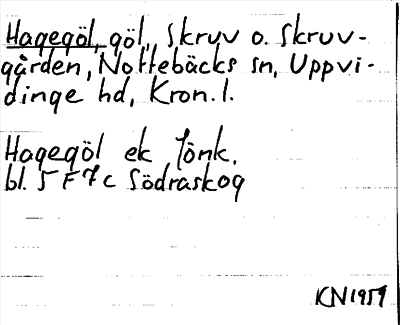 Hagegöl, göl, Skruv o. Skruv-
gården, Nottebäcks sn, Uppvi-
dinge hd, Kron. l.
Hagegöl ek Jönk.
bl. 5 F 7 c Södraskog
KN 1959